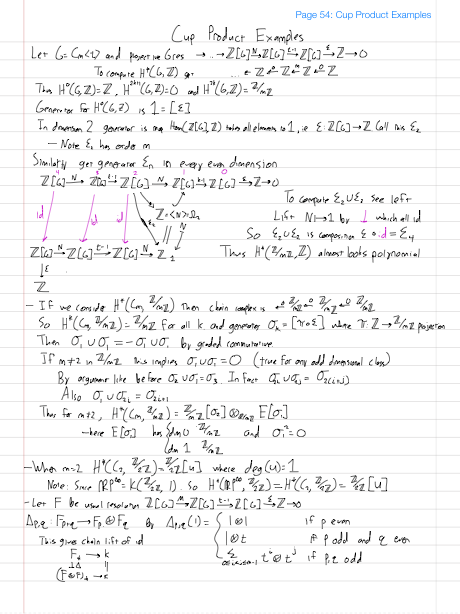 Page 54: Cup Product Examples
Cup Product Examples
Let G = Cm = <t> and projective Gres → ... → Z[G] →N Z[G] →t-1 Z[G] →ε Z → 0
To compute H*(G,Z) get ... ← Z ←0 Z ←m Z ←0 Z
Thus H⁰(G,Z) = Z, H²ᵏ⁺¹(G,Z) = 0 and H²ᵏ(G,Z) = Z/mZ
Generator for H⁰(G,Z) is 1 = [ε]
In dimension 2 generator is map Hom(Z[G],Z) takes all elements to 1, ie ε: Z[G] → Z Call this ε₂
- Note ε₂ has order m
Similarly get generator εn in every even dimension
4 3 2 1 0
Z[G] →N Z[G] →t-1 Z[G] →N Z[G] →t-1 Z[G] →ε Z → 0
To compute ε₂∪ε₂ see left
id id id ε₂ Z = <N> N
Lift N↦1 by ↓ which all id
So ε₂∪ε₂ is composition ε∘id = ε₄
Z[G] →N Z[G] →t-1 Z[G] →N Z 1
Thus H*(Z/mZ,Z) almost looks polynomial
↓ε
Z
- If we consider H*(Cm, Z/mZ) Then chain complex is ←0 Z/mZ ←0 Z/mZ ←0 Z/mZ
So Hᵏ(Cm, Z/mZ) = Z/mZ for all k and generators σk = [π∘ε] where π: Z → Z/mZ projection
Then σ₁∪σ₁ = -σ₁∪σ₁ by graded commutative
If m≠2 in Z/mZ this implies σ₁∪σ₁ = 0 (true for any odd dimensional class)
By argument like before σ₂∪σ₁ = σ₃. In fact σ₂ᵢ∪σ₂ⱼ = σ₂₍ᵢ₊ⱼ₎
Also σ₁∪σ₂ᵢ = σ₂ᵢ₊₁
Thus for m≠2, H*(Cm, Z/mZ) = Z/mZ[σ₂] ⊗Z/mZ E[σ₁]
-here E[σ₁] has {dim 0 Z/mZ and σ₁² = 0
{dim 1 Z/mZ
-When m=2 H*(C₂, Z/2Z) = Z/2Z[u] where deg(u) = 1
Note: Since RP∞ = K(Z/2Z, 1). So H*(RP∞, Z/2Z) = H*(C₂, Z/2Z) = Z/2Z[u]
-Let F be usual resolution Z[G] →N Z[G] →t-1 Z[G] →ε Z → 0
Δp,q: Fp+q → Fp ⊗ Fq by Δp,q(1) = { 1⊗1 if p even
This gives chain lift of id
1⊗t if p odd and q even
F* → k
Σ tⁱ⊗tʲ if p,q odd
↓Δ ||
(F⊗F)* → k